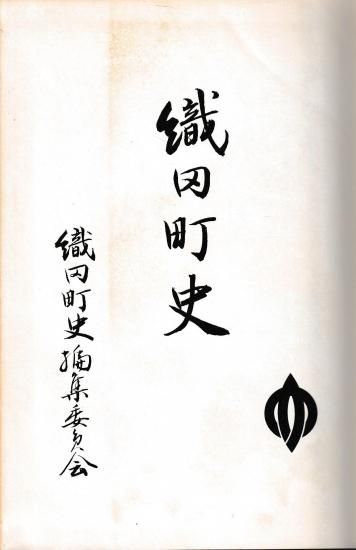 織田町史
織田町史編集委員会